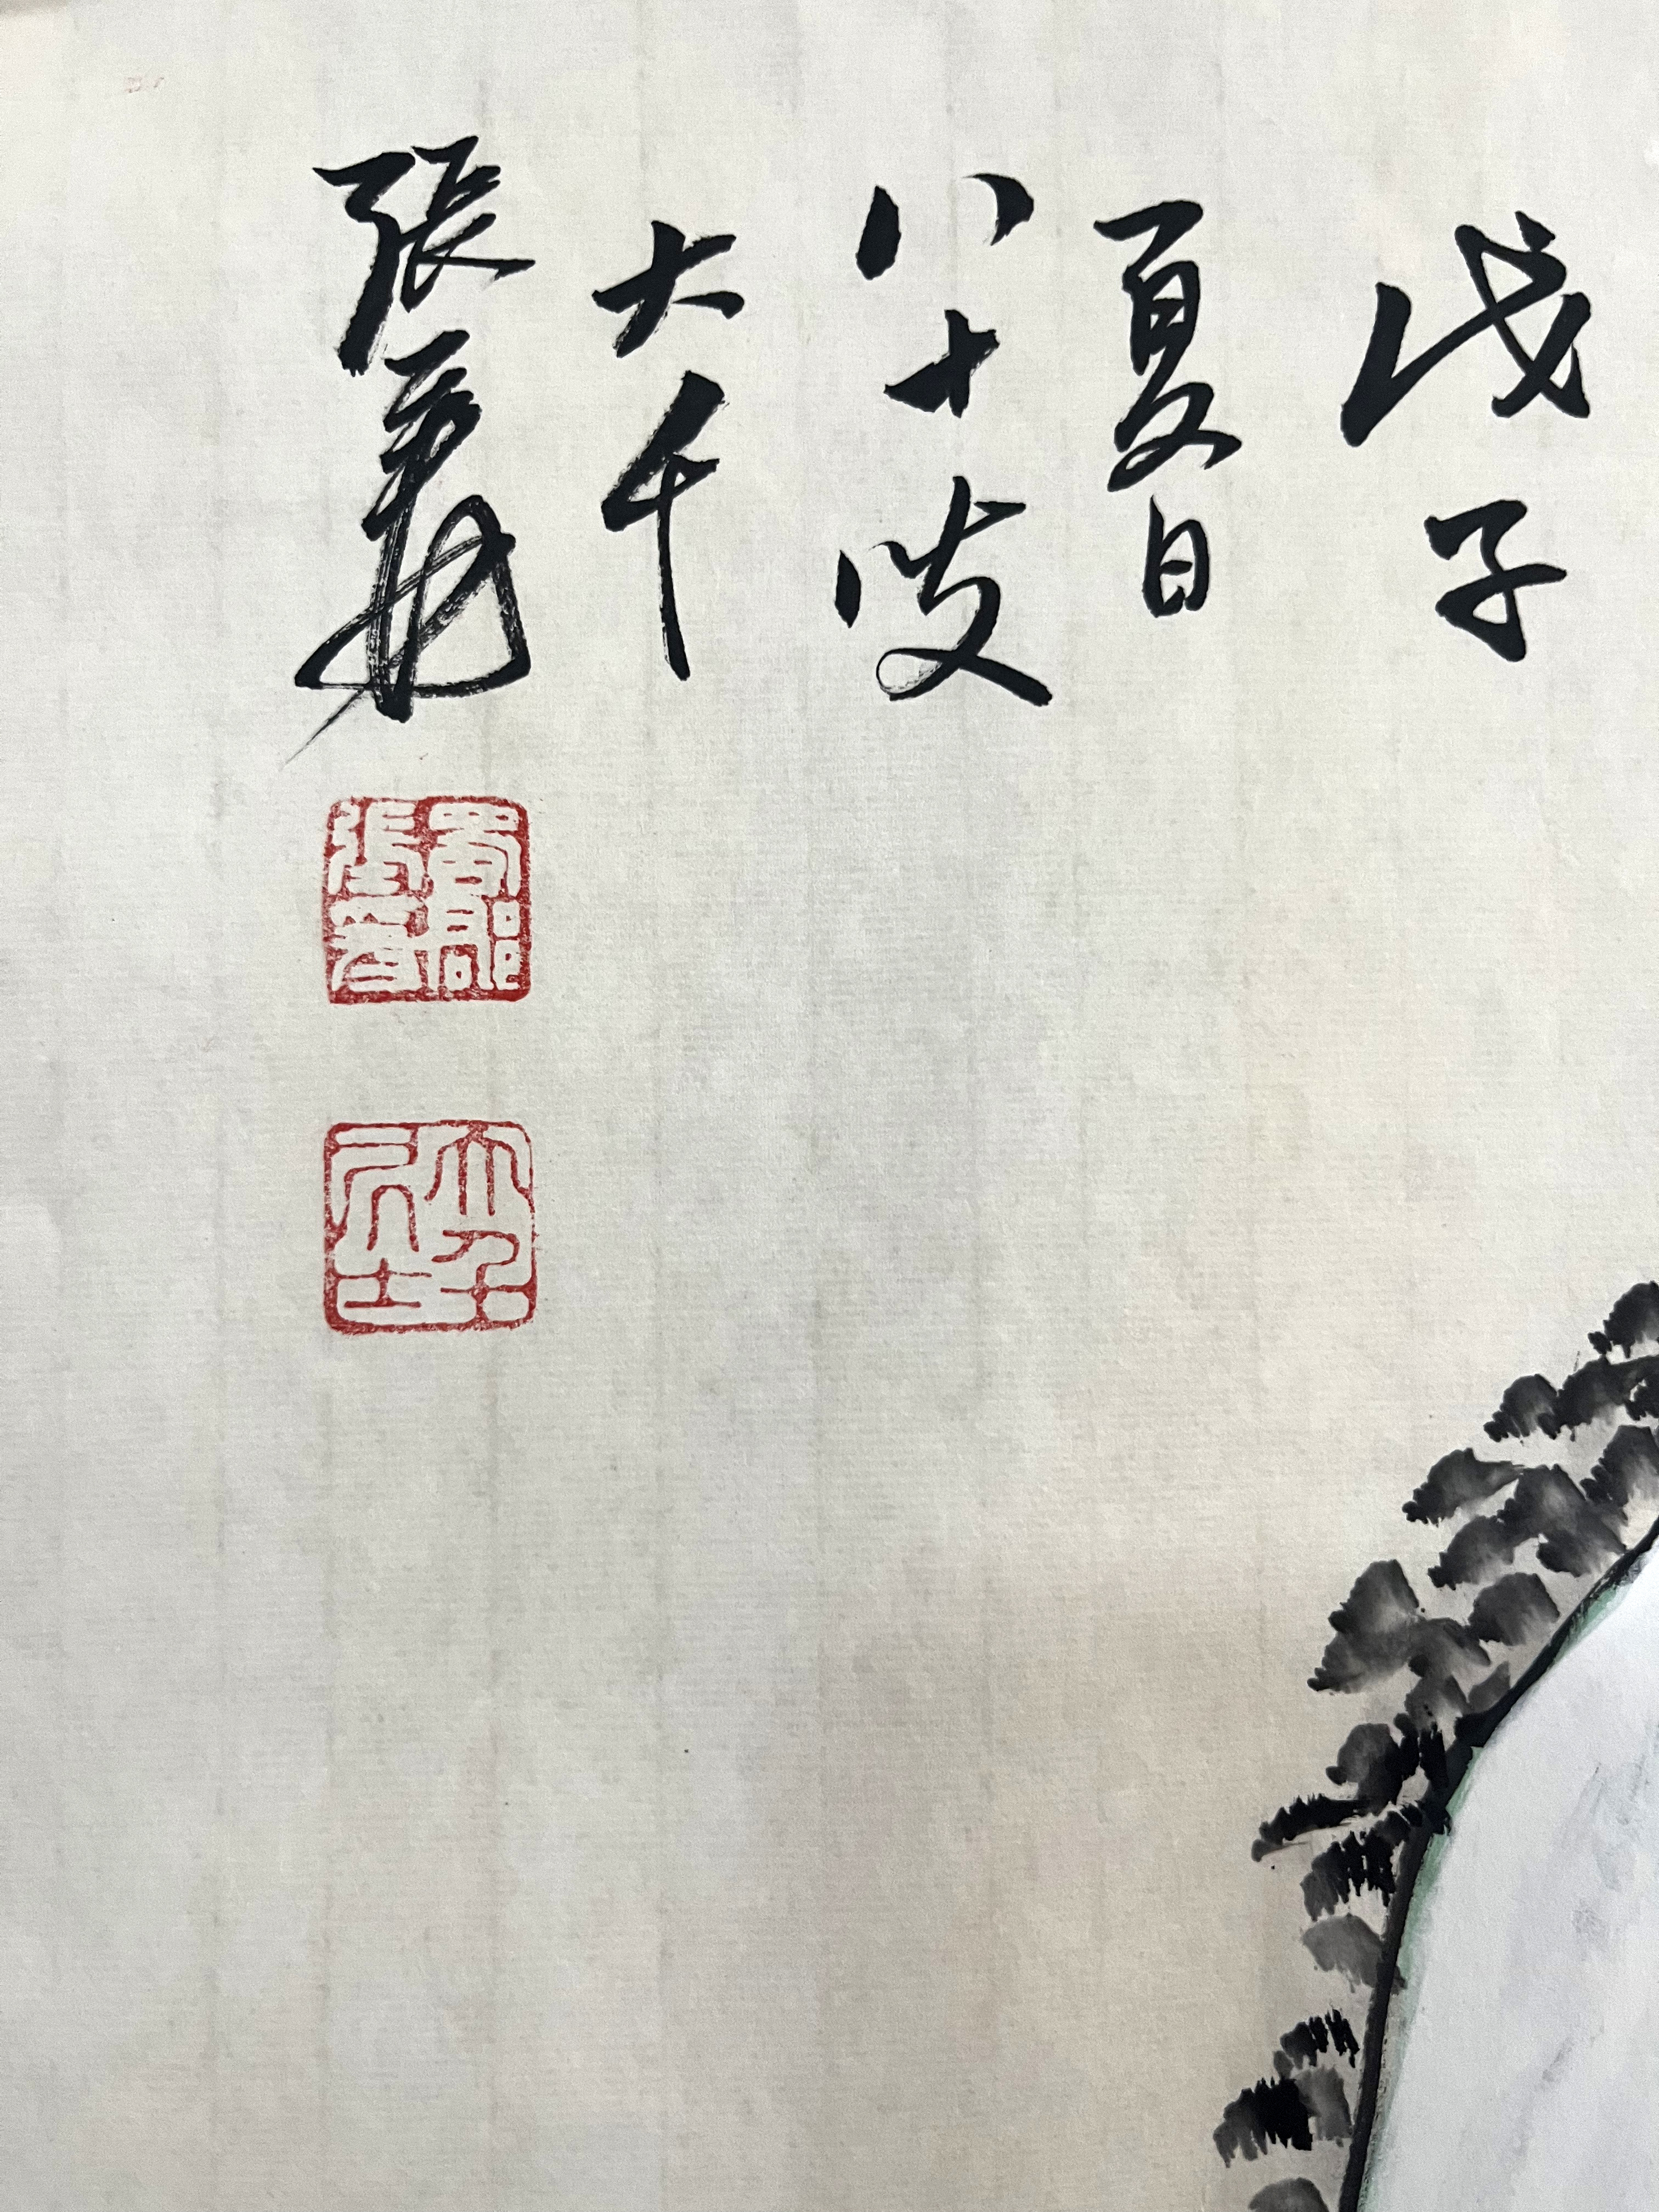 戊子
夏日
八十叟
大千
張爰
蜀郡張爰
大千居士